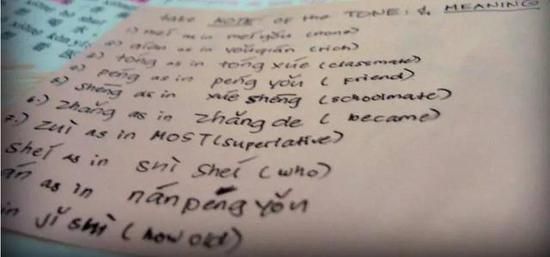 take NOTE of the TONE: & MEANING
1) meí as in meíyǒu (none)
2) qián as in yǒuqián (rich)
3) tóng as in tóng xué (classmate)
4) péng as in péng yǒu ( Friend)
5) shēng as in xué shēng (schoolmate)
6.) zhǎng as in zhǎng de ( became)
7.) zuì as in MOST (superlative)
sheí as in shì sheí (who)
án as in nánpéng yǒu
in jǐ shì (how old)